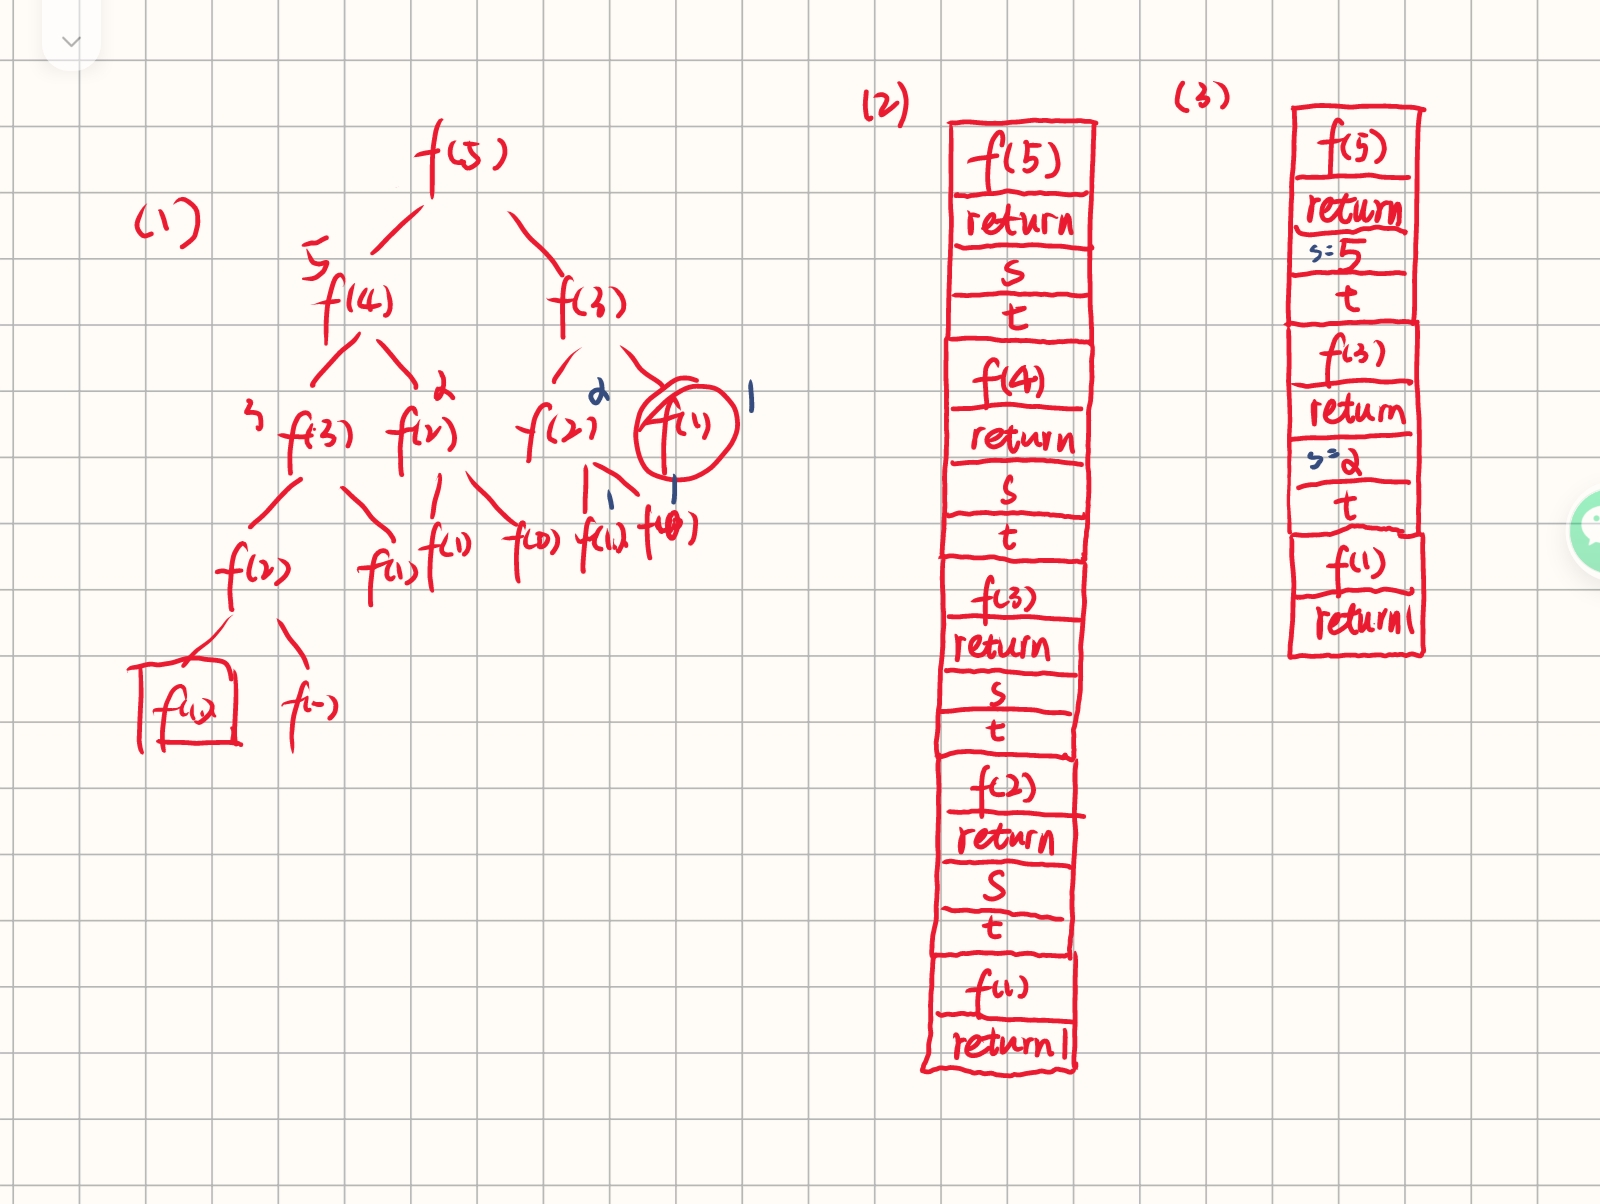 (1)
f(5)
5
f(4) f(3)
3 f(3) 2 f(2) f(2) 2 f(1) 1
f(2) f(1) f(1) f(0) f(1) 1 f(0) 1
f(1)
(2)
f(5)
return
s
t
f(4)
return
s
t
f(3)
return
s
t
f(2)
return
s
t
f(1)
return 1
(3)
f(5)
return
s=5
t
f(3)
return
s=2
t
f(1)
return 1